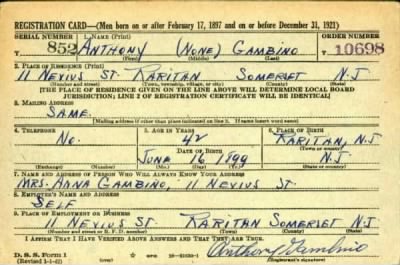 REGISTRATION CARD—(Men born on or after February 17, 1897 and on or before December 31, 1921)
SERIAL NUMBER 1. NAME (Print) ORDER NUMBER
852 ANTHONY (NONE) GAMBINO 10698
(First) (Middle) (Last)
2. PLACE OF RESIDENCE (Print)
11 NEVIUS ST. RARITAN SOMERSET N.J
(Number and street) (Town, township, village, or city) (County) (State)
[THE PLACE OF RESIDENCE GIVEN ON THE LINE ABOVE WILL DETERMINE LOCAL BOARD
JURISDICTION; LINE 2 OF REGISTRATION CERTIFICATE WILL BE IDENTICAL]
3. MAILING ADDRESS
SAME.
[Mailing address if other than place indicated on line 2. If same insert word same]
4. TELEPHONE 5. AGE IN YEARS 6. PLACE OF BIRTH
No. 42 RARITAN, N.J
DATE OF BIRTH (Town or county)
JUNE 16 1899 N.J
(Exchange) (Number) (Mo.) (Day) (Yr.) (State or country)
7. NAME AND ADDRESS OF PERSON WHO WILL ALWAYS KNOW YOUR ADDRESS
MRS. ANNA GAMBINO, 11 NEVIUS ST.
8. EMPLOYER'S NAME AND ADDRESS
SELF
9. PLACE OF EMPLOYMENT OR BUSINESS
11 NEVIUS ST. RARITAN SOMERSET N.J
(Number and street or R. F. D. number) (Town) (County) (State)
I AFFIRM THAT I HAVE VERIFIED ABOVE ANSWERS AND THAT THEY ARE TRUE.
D. S. S. Form 1
(Revised 1-1-42) (over) Anthony Gambino
(Registrant's signature)